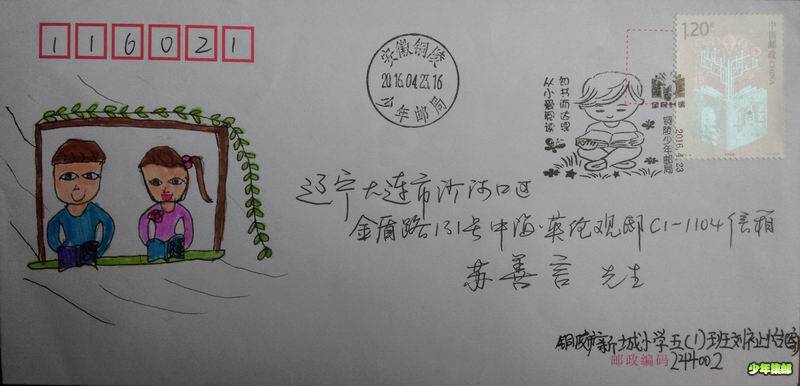 116021
安徽铜陵
2016.04.23.16
少年邮局
知书而达理
从小爱阅读
全民阅读
铜陵少年邮局
2016.4.23
1.20元
中国邮政
CHINA
辽宁大连市沙河口区
金盾路131号中海·英伦观邸C1-1104信箱
苏善言 先生
铜陵市新城小学五(1)班刘
邮政编码 244002
少年集邮